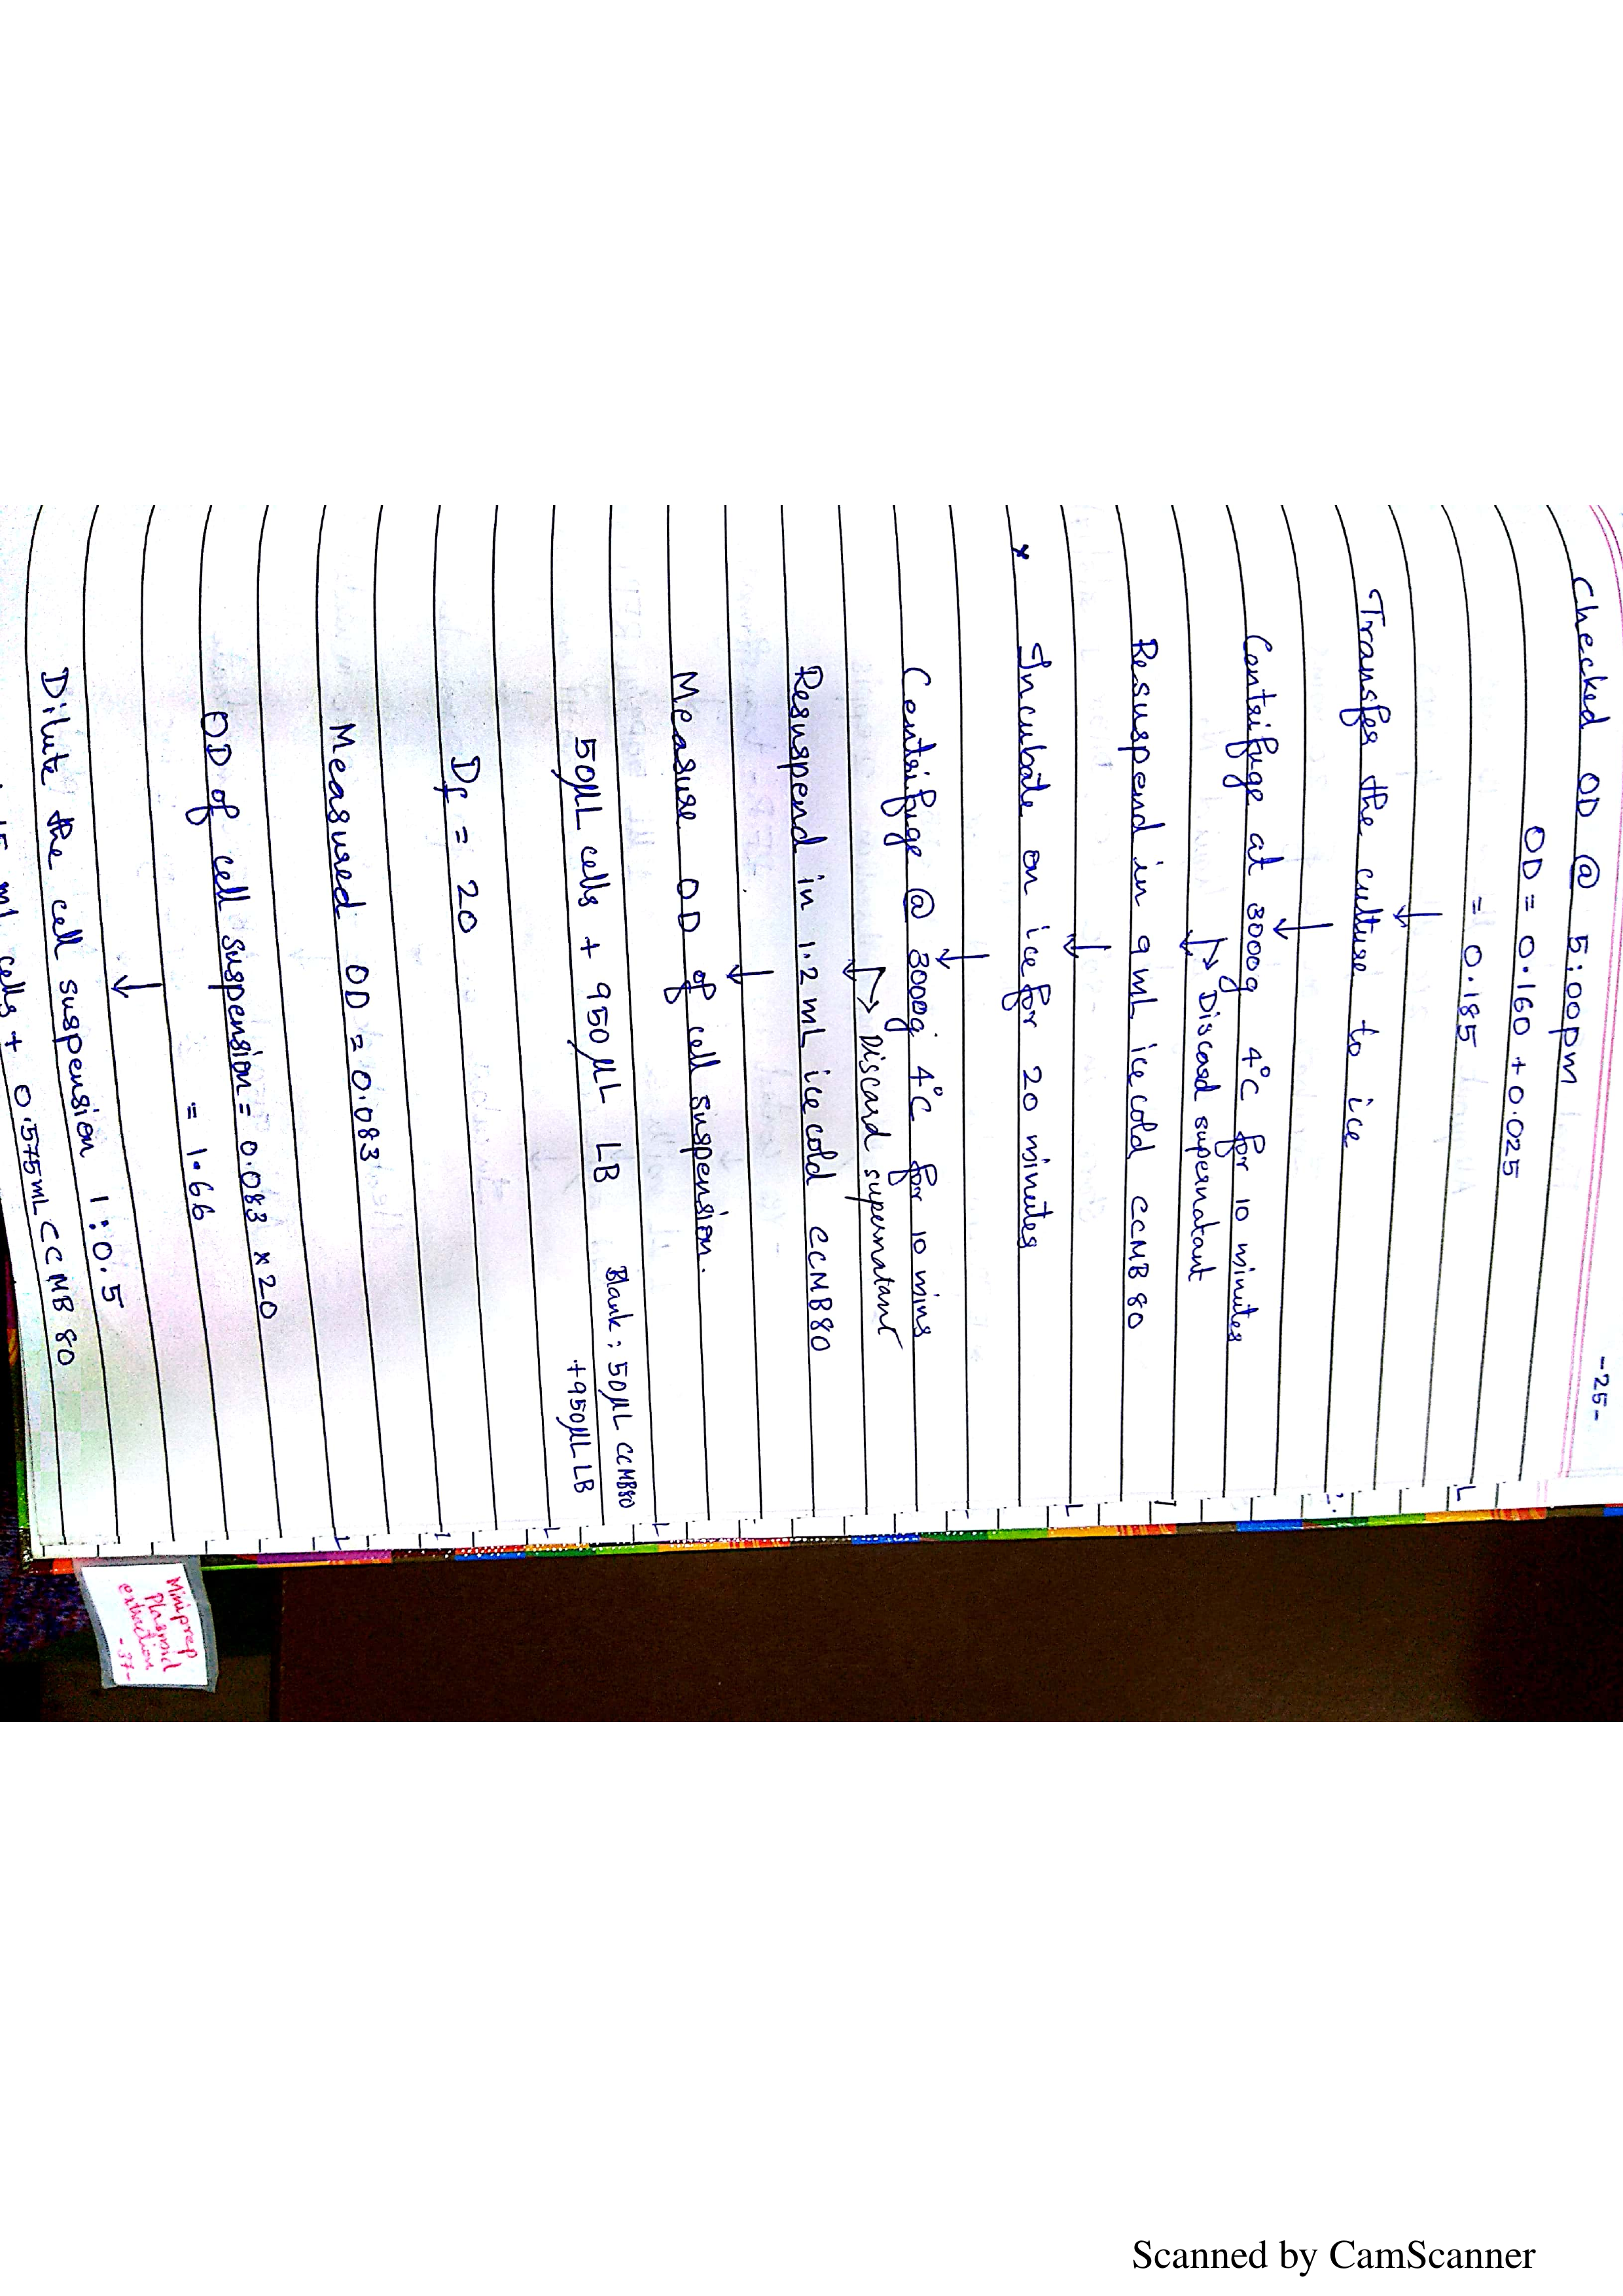 -25-
Checked OD @ 5:00pm
OD = 0.160 + 0.025
= 0.185
↓
Transfer the culture to ice
↓
Centrifuge at 3000g 4°C for 10 minutes
↓ → Discard supernatant
Resuspend in 9 mL ice cold CCMB 80
↓
* Incubate on ice for 20 minutes
↓
Centrifuge @ 3000g 4°C for 10 mins
↓ → Discard supernatant
Resuspend in 1.2 mL ice cold CCMB80
↓
Measure OD of cell suspension.
50µL cells + 950µL LB
Blank : 50µL CCMB80
+950µL LB
Df = 20
Measured OD = 0.083
OD of cell suspension = 0.083 × 20
= 1.66
↓
Dilute the cell suspension 1:0.5
mL cells + 0.575mL CCMB 80
Miniprep
Plasmid
extraction
-37-
Scanned by CamScanner